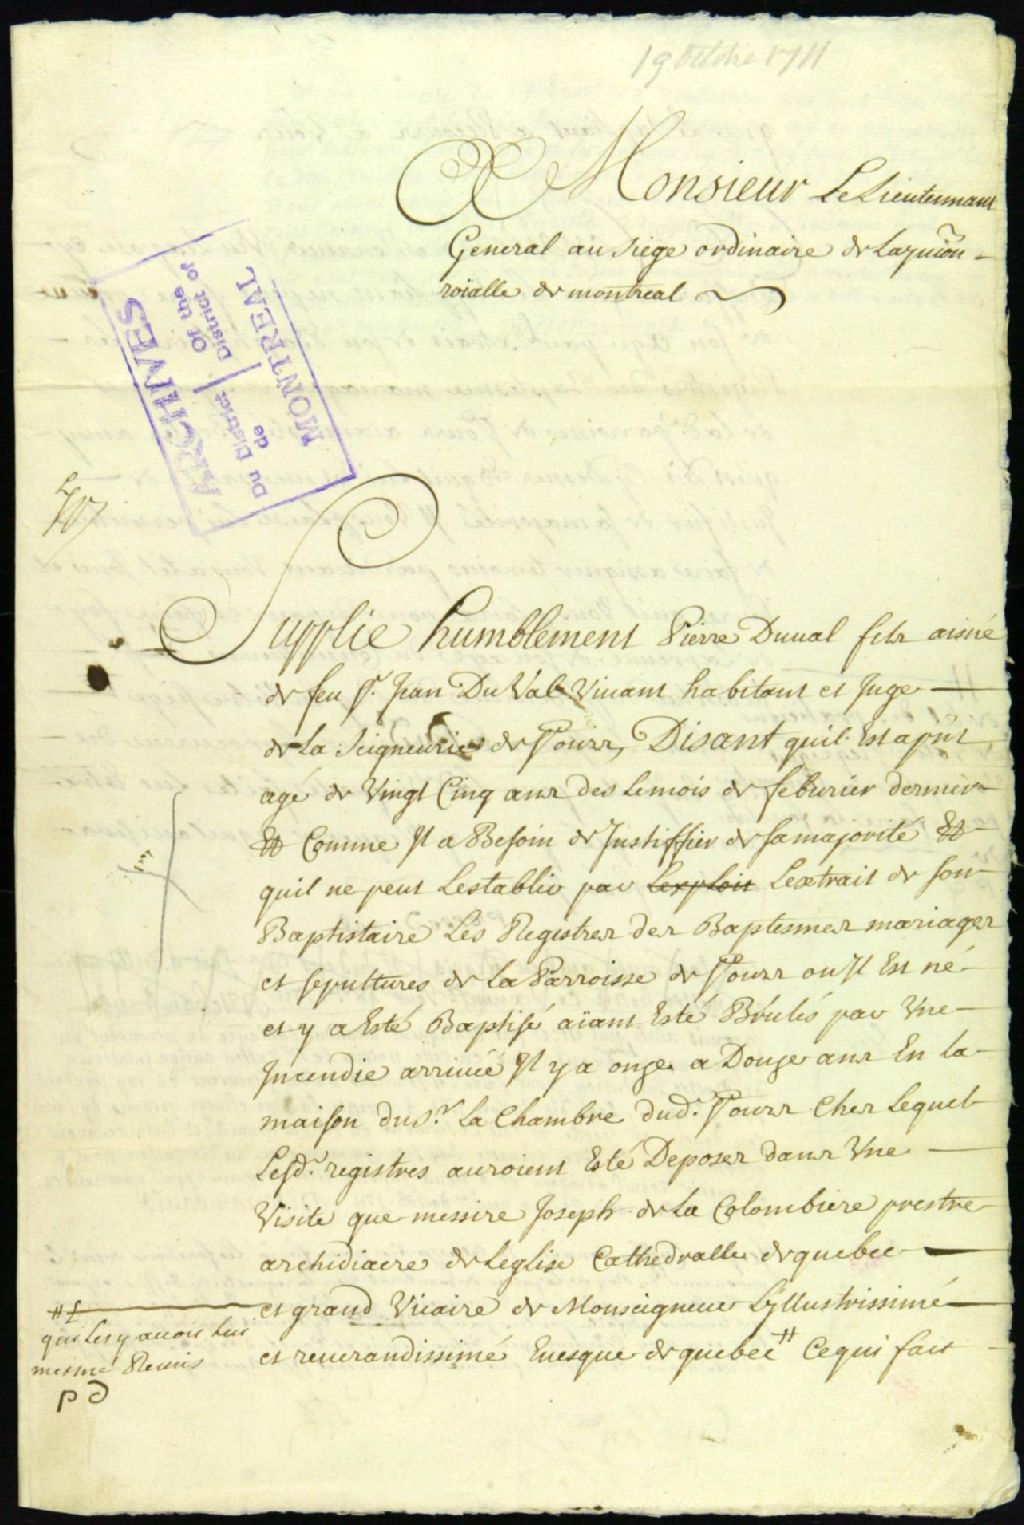 19 Octobre 1711
A Monsieur Le Lieutennant
General au siege ordinaire de La
roialle de montreal
ARCHIVES
Du District Of the
de District of
MONTREAL
Supplie humblement Pierre Duual fils aisné
de feu Sr. Jean Du Val Viuant habitant et Juge
de La Seigneurie de Sourr, Disant quil Est apnt
agé de Vingt Cinq ans des Le mois de feburier dernier
Et Comme Jl a Besoin de Justiffier de sa majorité Et
quil ne peut Lestablir par Lexploit Lextrait de son
Baptistaire Les Registres des Baptesmes mariages
et sepultures de La Parroisse de Sourr ou Jl Est né
et y a Esté Baptisé aïant Esté Brulés par Vne
Jncendie arriuée Jl y a onze a Douze ans En La
maison du sr. La Chambre dud. Sourr Ches Lequel
Lesd. registres auroient Esté Deposez dans Vne
Visite que messire Joseph de La Colombiere prestre
archidiacre de Leglise Cathedralle de quebec
et grand Vicaire de Monseigneur Lyllustrissime
et reuerandissime Euesque de quebec # Ce qui fait
#
qui Les y auoit Luy
mesme Reunis
P D